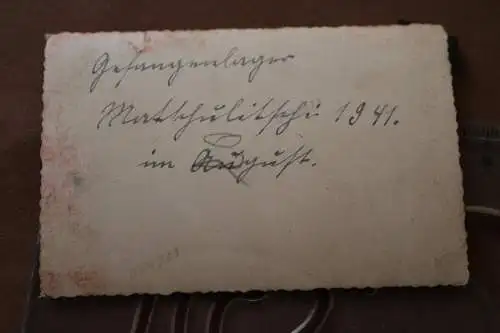 Gefangenenlager
Matschulitschi 1941.
im August.